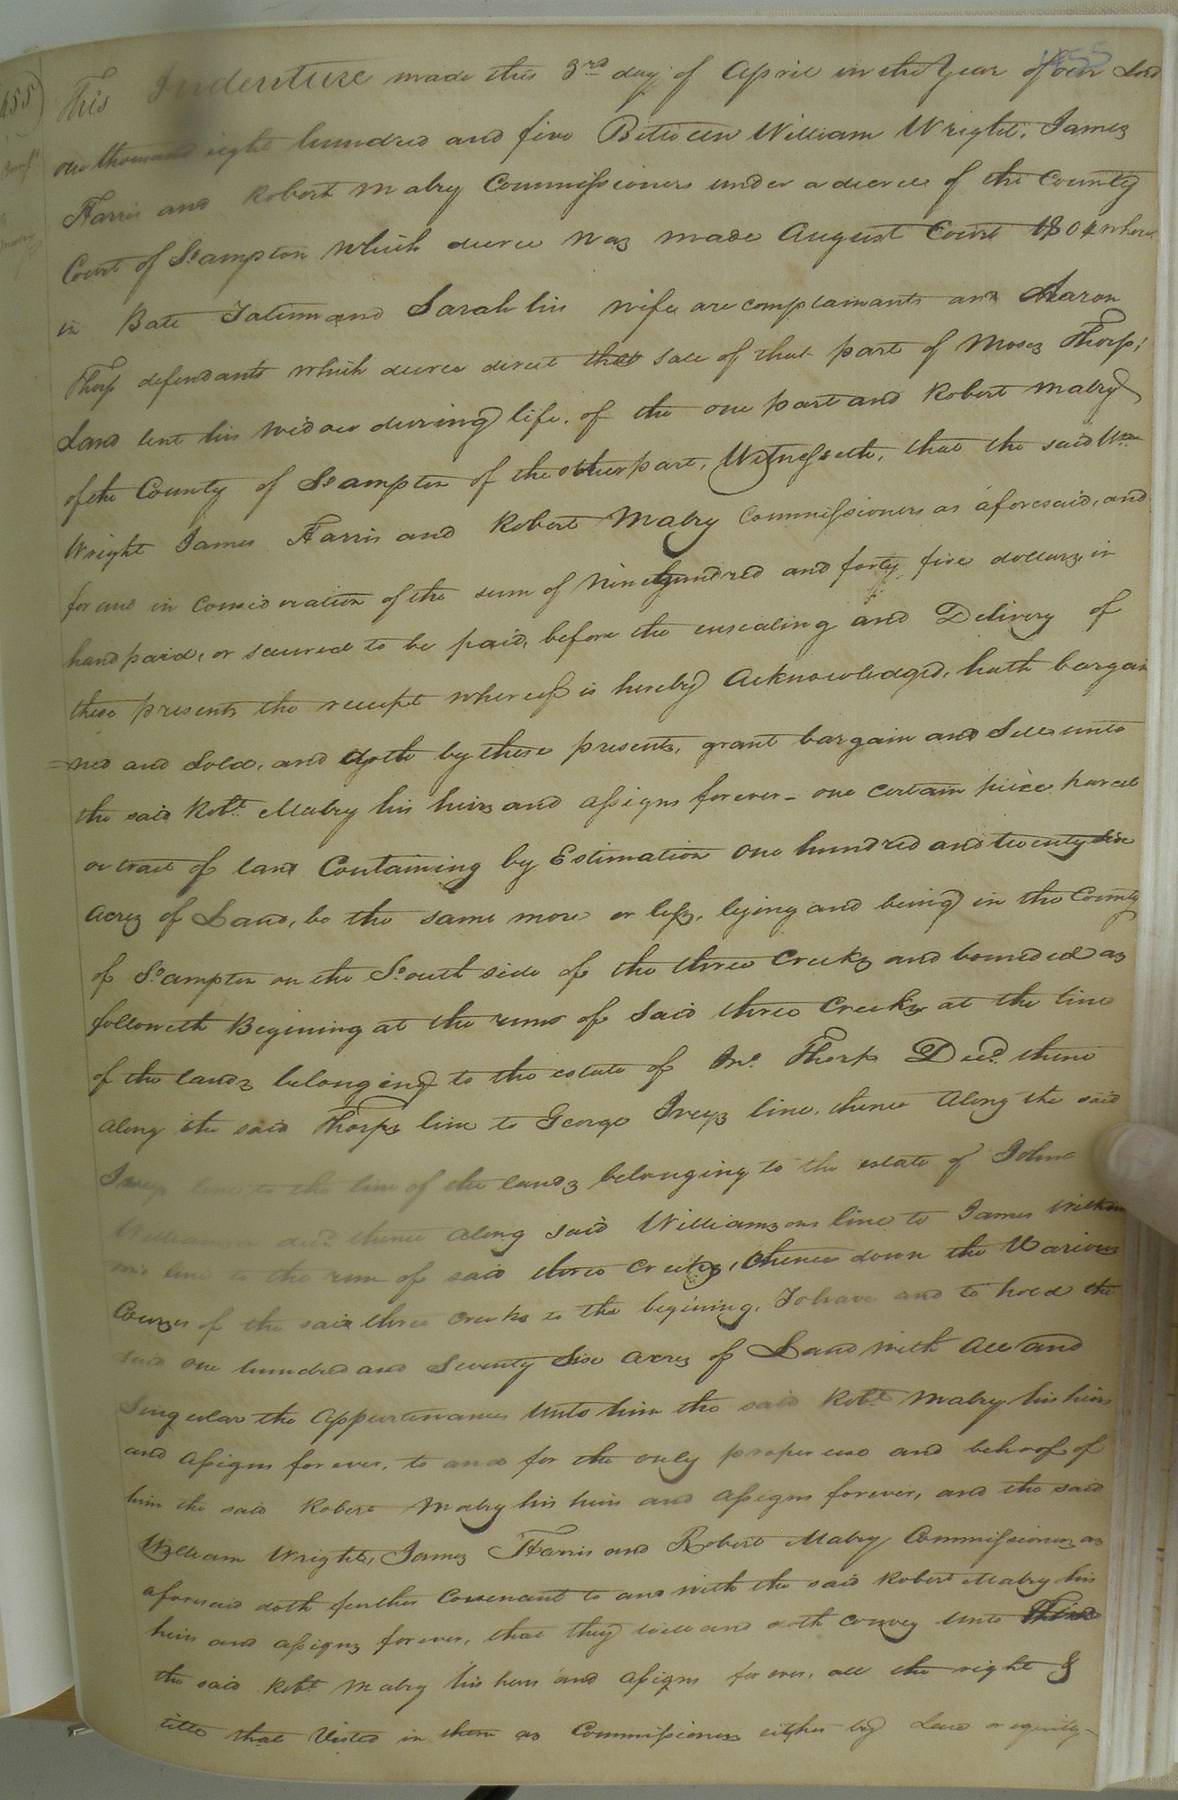 455
This Indenture made this 3rd day of April in the Year of our Lord
one thousand eight hundred and five Between William Wright, James
Harris and Robert Mabry Commissioners under a decree of the County
Court of S:ampton which decree was made August Court 1804 where
in Bate Tatum and Sarah his wife are complainants and Aaron
Thorp defendants which decree direct the sale of that part of Moses Thorp's
Land lent his widow during life, of the one part and Robert Mabry
of the County of S:ampton of the other part, Witnesseth, that the said Wm
Wright James Harris and Robert Mabry Commissioners as aforesaid, and
for and in consideration of the sum of Nine hundred and forty five dollars in
hand paid, or secured to be paid, before the ensealing and Delivery of
these presents the receipt whereof is hereby Acknowledged, hath bargai
=ned and Sold, and doth by these presents, grant bargain and Sell unto
the said Robt. Mabry his heirs and assigns forever - one certain piece parcel
or tract of land Containing by Estimation One hundred and twenty six
Acres of Land, be the same more or less, lying and being in the County
of S:ampton on the South side of the three Creeks and bounded as
followeth Begining at the runs of said three Creeks at the line
of the lands belonging to the estate of Jno. Thorp Decd. thence
along the said Thorps line to George Iveys line, thence Along the said
Iveys line to the line of the lands belonging to the estate of John
Williamson decd. thence along said Williamsons line to James
line to the run of said three Creeks, thence down the Various
Courses of the said three creeks to the begining. To have and to hold the
said one hundred and Seventy Six Acres of Land with All and
Singular the Appurtenances Unto him the said Robt. Mabry his heirs
and assigns forever, to and for the only proper use and behoof of
him the said Robert Mabry his heirs and assigns forever, and the said
William Wright, James Harris and Robert Mabry Commissioners as
aforesaid doth further Covenant to and with the said Robert Mabry his
heirs and assigns forever, that they will and doth convey unto
the said Robt. Mabry his heirs and assigns forever, all the right &
title that Vested in them as Commissioners either by Law or equity-